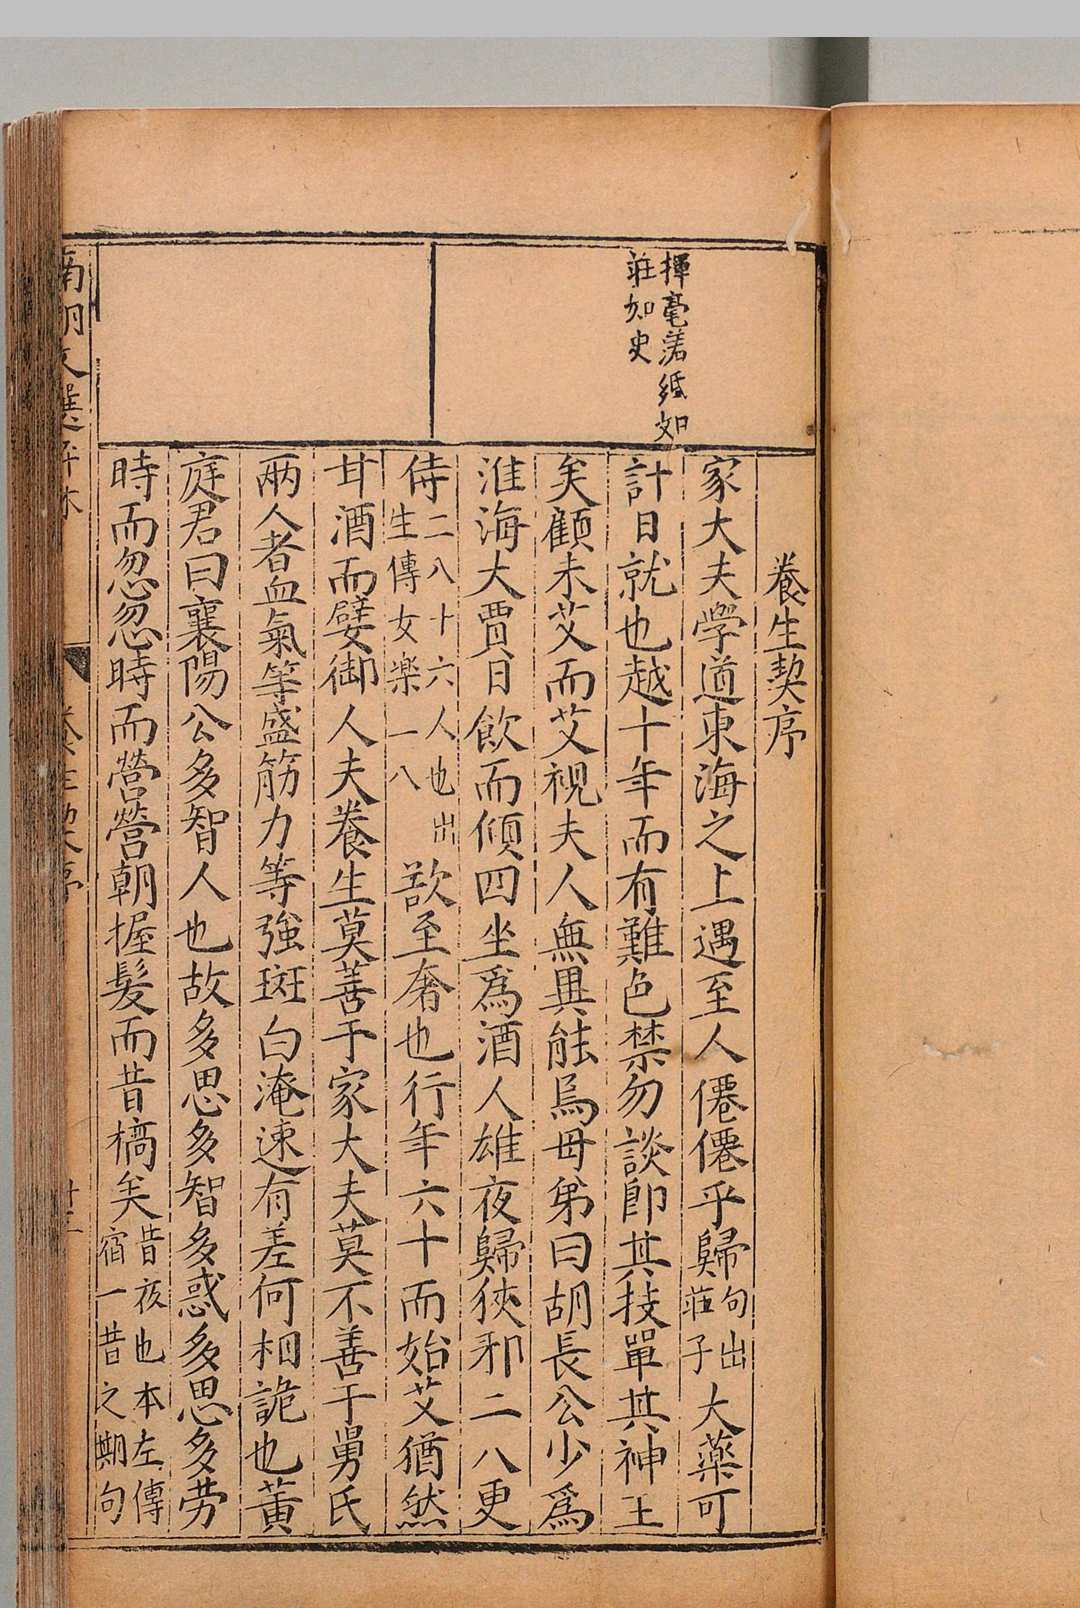 揮毫落紙如
莊如史
養生契序
家大夫學道東海之上遇至人僊僊乎歸句出莊子大藥可
計日就也越十年而有難色禁勿談卽其技單其神王
矣顧未艾而艾視夫人無異能焉毋弟曰胡長公少爲
淮海大賈日飮而傾四坐爲酒人雄夜歸狹邪二八更
侍二八十六人也出生傳女樂一八歆至奢也行年六十而始艾猶然
甘酒而嬖御人夫養生莫善于家大夫莫不善于舅氏
兩人者血氣等盛筋力等強斑白淹速有差何相詭也黃
庭君曰襄陽公多智人也故多思多智多惑多思多劳
時而忽忽時而營營朝握髮而昔槁矣昔夜也本左傳宿一昔之期句